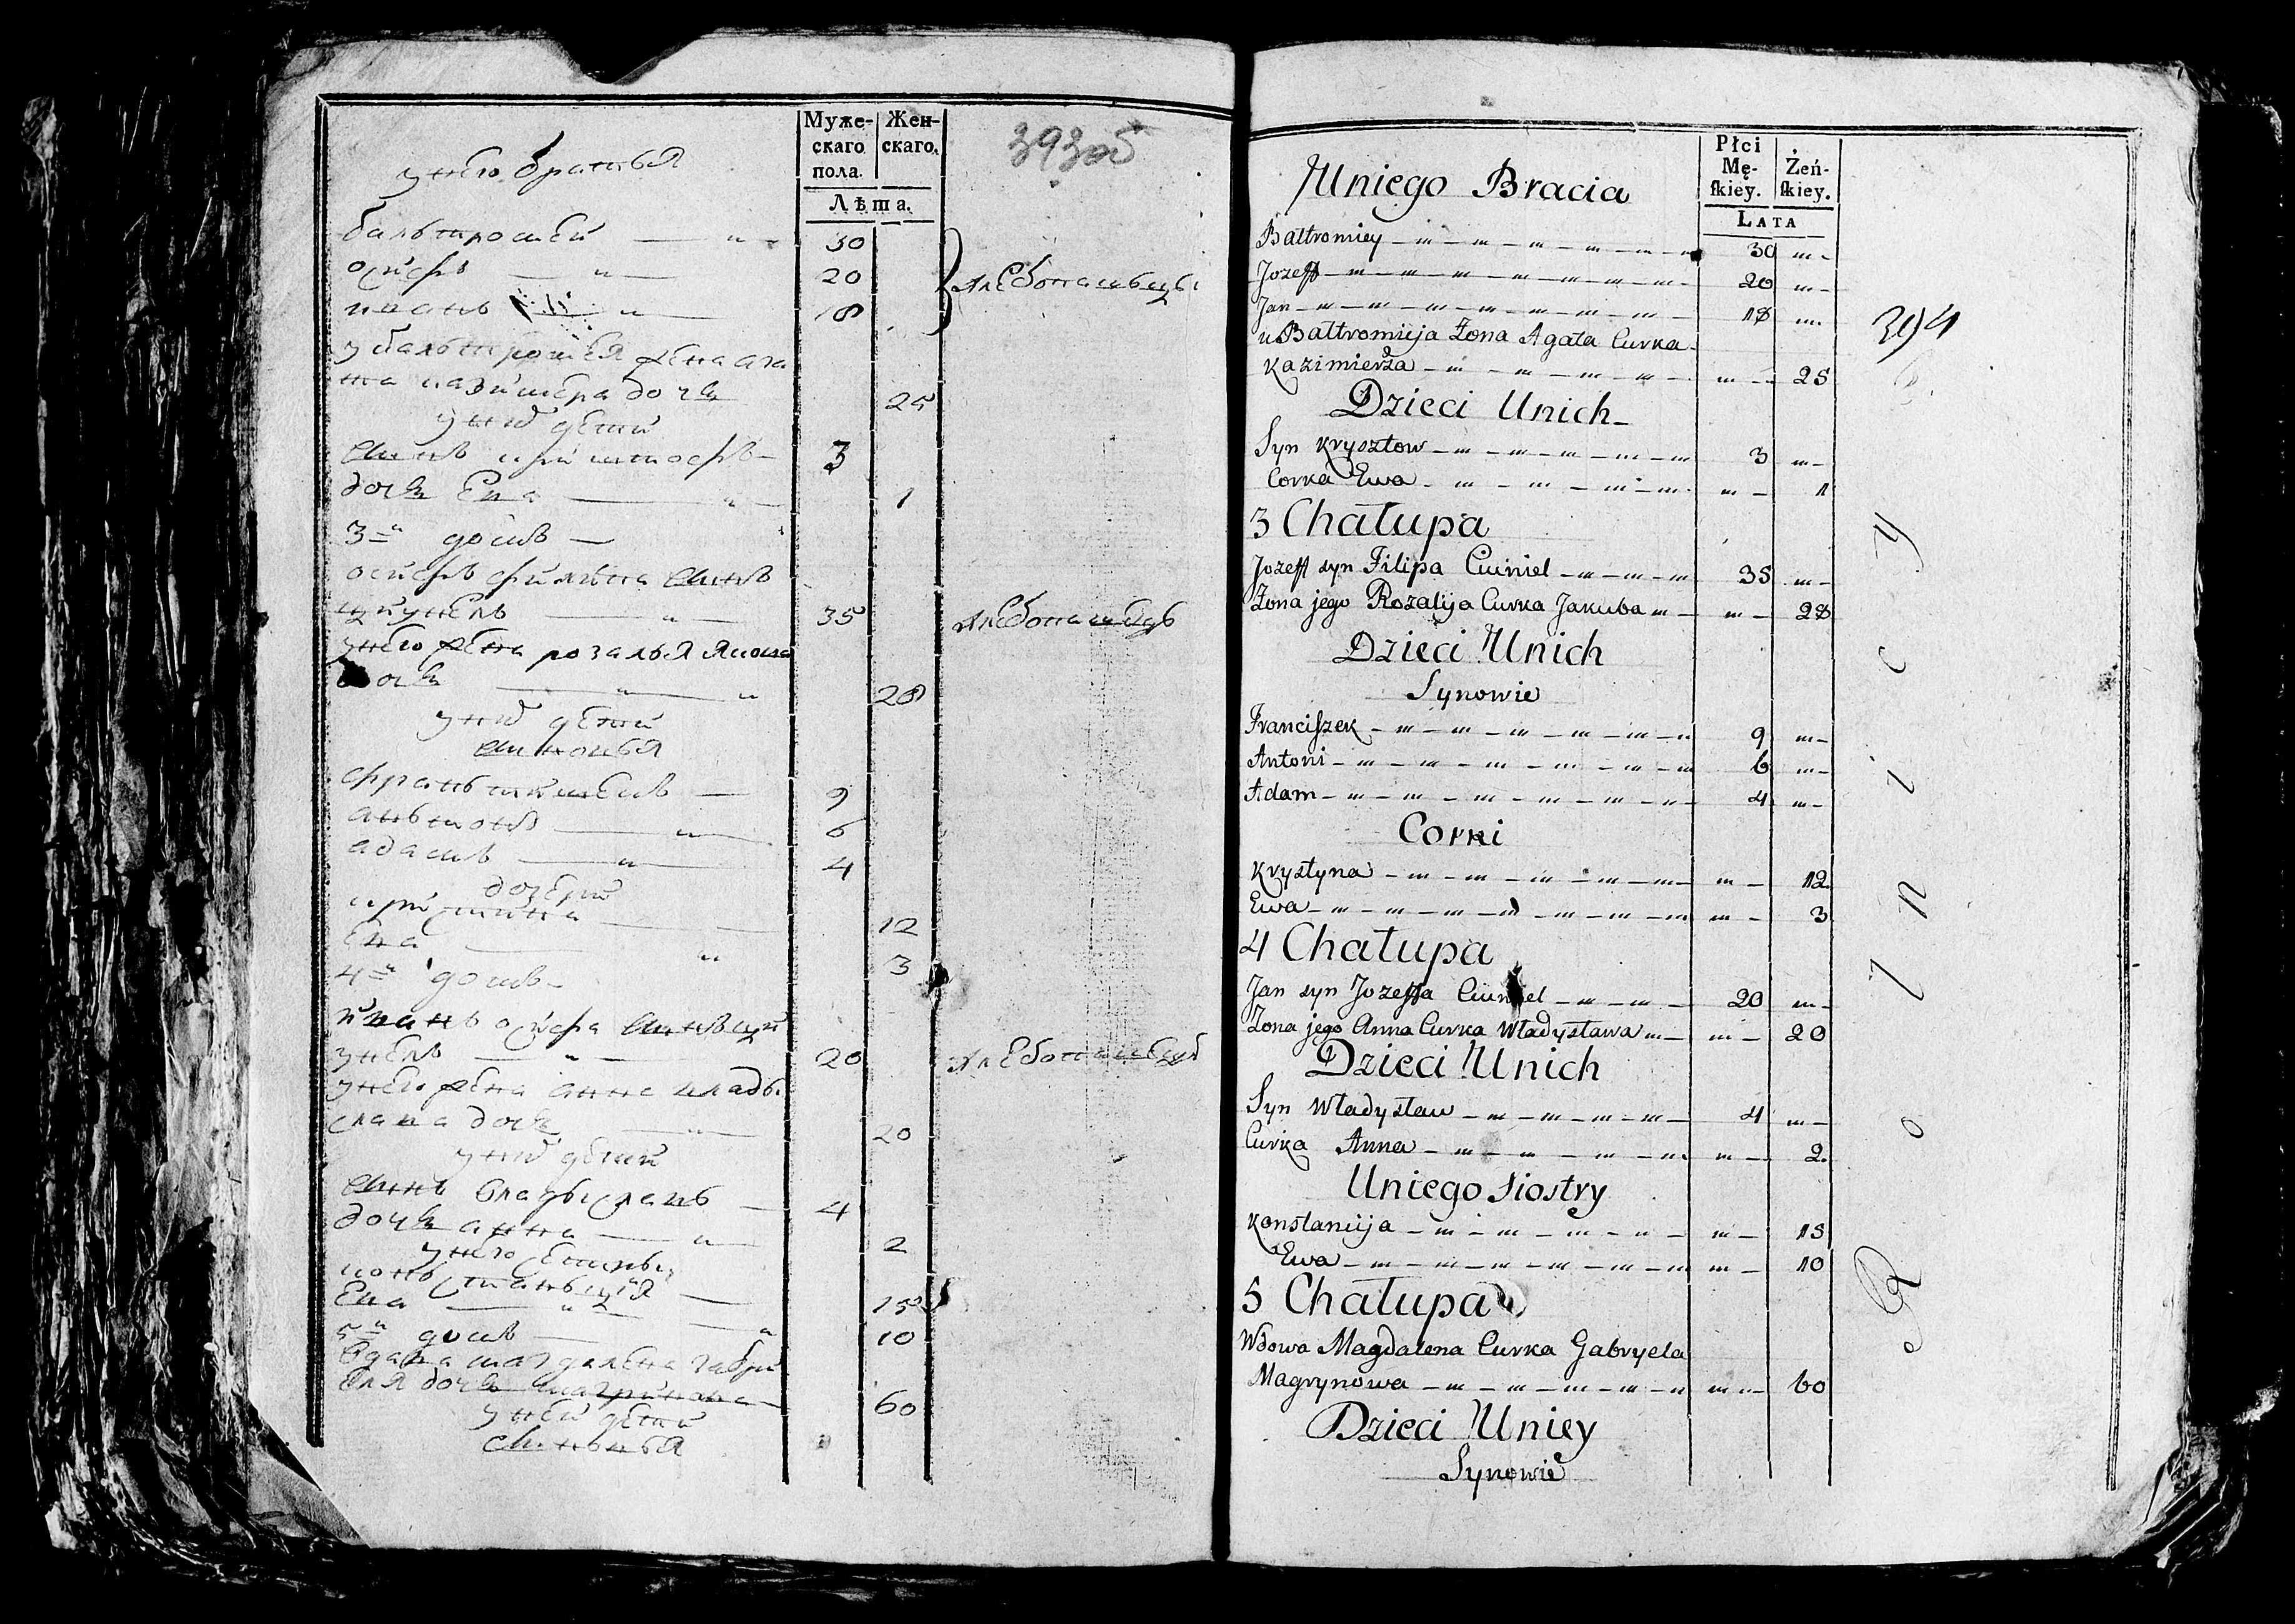 393об
Муже-
скаго
пола.
Жен-
скаго.
Лѣта.
у него братья
бальтромей — 30
осифъ — 20
иванъ — 18
хлебопашьцы
у бальтромея жена ага
та казимера дочь 25
у них дети
синъ криштофъ — 3
дочь Ева — 1
3й домъ —
осифъ филипа синъ
цуунель — 35
хлебопашецъ
у него жена розалья якоба
дочь — 28
у них дети
синовья
франьтишекъ — 9
аньтони — 6
адамъ — 4
дочери
криштина — 12
Ева — 3
4й домъ —
иванъ осифа синъ цуй
унель — 20
хлебопашецъ
у него жена анна влады
слава дочь 20
у них дети
синъ владыславъ — 4
дочь анна — 2
у него сестры
коньстаньция — 15
Ева — 10
5й домъ —
вдава магдалена габри
еля дочь магринова 60
у ней дети
синовья
Płci
Mę-
skiey.
Żeń-
skiey.
LATA
394
Uniego Bracia
Baltromiey — 30
Jozeff — 20
Jan — 18
u Baltromieja Żona Agata Curka
Kazimierża — 25
Dzieci Unich
Syn Krysztow — 3
Corka Ewa — 1
3 Chałupa
Jozeff syn Filipa Ciuniel — 35
Żona jego Rozalija Curka Jakuba — 28
Dzieci Unich
Synowie
Franciszek — 9
Antoni — 6
Adam — 4
Corki
Krystyna — 12
Ewa — 3
4 Chałupa
Jan syn Jozeffa Ciuniel — 20
Żona jego Anna Curka Władysława — 20
Dzieci Unich
Syn Władysław — 4
Curka Anna — 2
Uniego Siostry
Konstancija — 15
Ewa — 10
5 Chałupa
Wdowa Magdalena Curka Gabryela
Magrynowa — 60
Dzieci Uniey
Synowie
Rolnicy